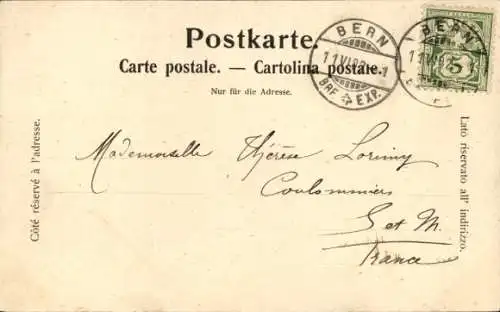 Postkarte.
Carte postale. — Cartolina postale.
Nur für die Adresse.
BERN
BRF EXP.
BERN
5
Côté réservé à l'adresse.
Mademoiselle Thérèse
Coulommiers
S et M.
France
Lato riservato all' indirizzo.